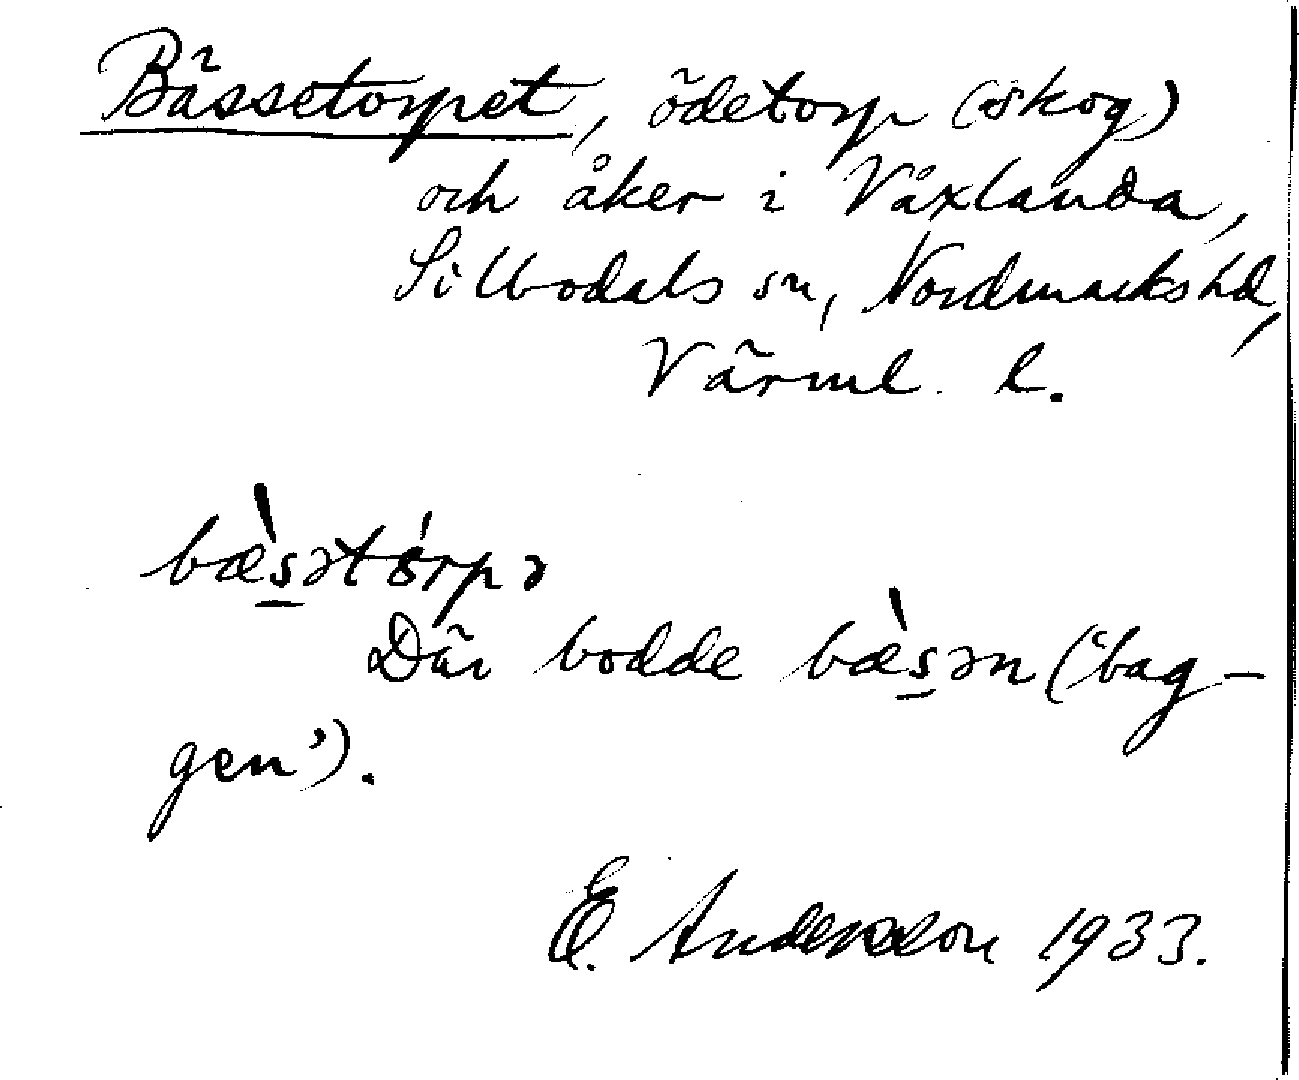 Bässetorpet, ödetorp (skog)
och åker i Våxlanda,
Silbodals sn, Nordmarks hd,
Värml. l.
bæ̀s̠ətórpə
Där bodde bæ̀s̠ən ('bag-
gen').
E. Andersson 1933.